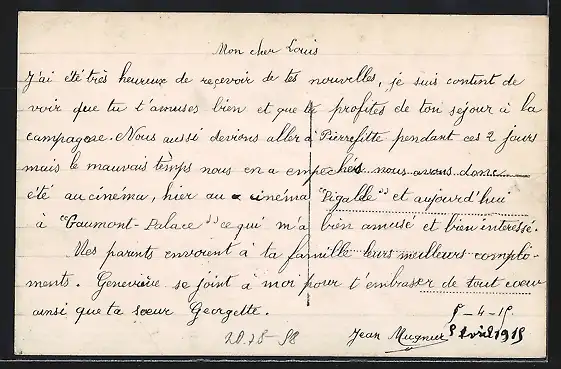 Mon cher Louis
J'ai été très heureux de reçevoir de tes nouvelles, je suis content de
voir que tu t'amuses bien et que tu profites de ton séjour à la
campagne. Nous aussi devions aller à Pierrefitte pendant ces 2 jours
mais le mauvais temps nous en a empechés nous avons donc
été au cinéma, hier au cinéma "Pigalle" et aujourd'hui
à "Gaumont-Palace" ce qui m'a bien amusé et bien interessé.
Mes parents envoient à ta famille leurs meilleurs compli-
ments. Geneviève se joint à moi pour t'embrasser de tout cœur
ainsi que ta sœur Georgette.
5-4-15
Jean Mugnier 5 Avril 1915